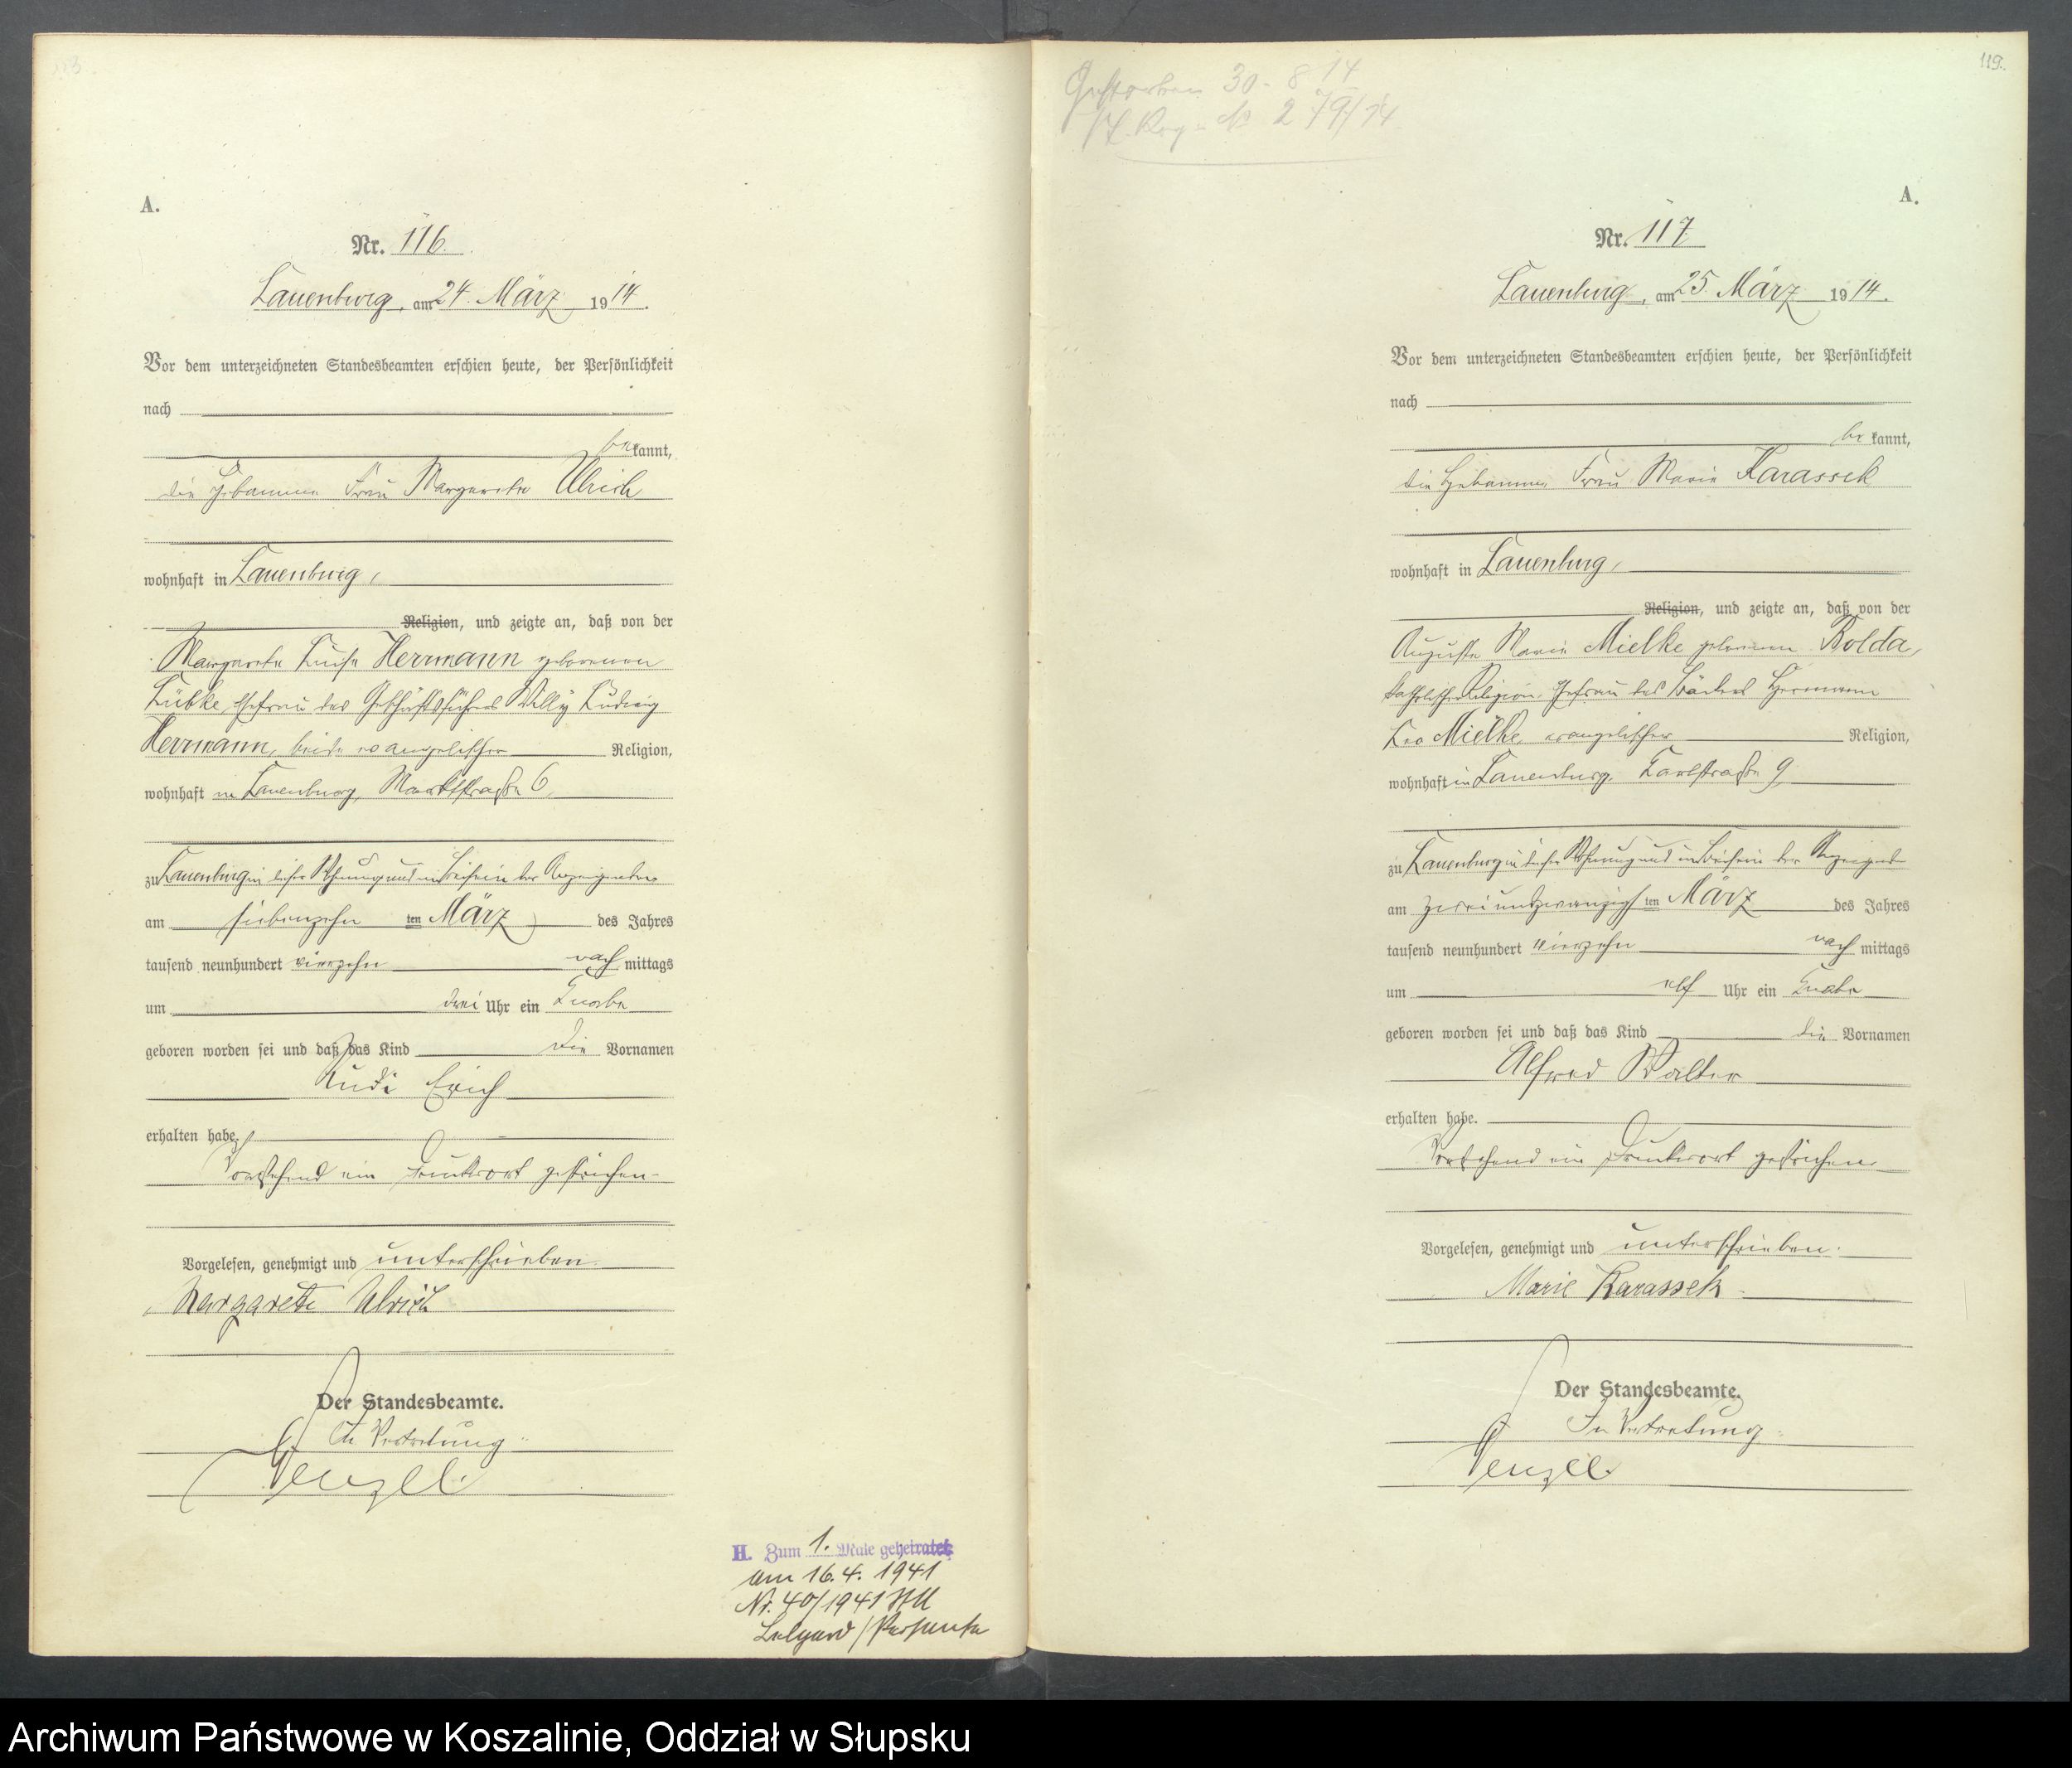 113
A.
Nr. 116.
Lauenburg, am 24. März 1914.
Vor dem unterzeichneten Standesbeamten erschien heute, der Persönlichkeit
nach
be kannt,
die Hebamme Frau Margarete Ulrich
wohnhaft in Lauenburg,
Religion, und zeigte an, daß von der
Margarete Luise Herrmann geborenen
Lübke, Ehefrau des Geschäftsführers Willy Ludwig
Herrmann, beide evangelischer Religion,
wohnhaft in Lauenburg, Marktstraße 6,
zu Lauenburg in dieser Wohnung und im Beisein der Anzeigenden
am siebenzehn ten März des Jahres
tausend neunhundert vierzehn nach mittags
um drei Uhr ein Knabe
geboren worden sei und daß das Kind die Vornamen
Rudi Erich
erhalten habe.
Vorstehend ein Druckwort gestrichen.
Vorgelesen, genehmigt und unterschrieben.
Margarete Ulrich
Der Standesbeamte.
In Vertretung.
Wenzel.
H. Zum 1. Male geheiratet
am 16.4. 1941
Nr. 40/1941 StA
Belgard/Persante
119.
Gestorben 30. 8. 14
St. Reg. No 279/14
A.
Nr. 117
Lauenburg, am 25. März 1914.
Vor dem unterzeichneten Standesbeamten erschien heute, der Persönlichkeit
nach
be kannt,
die Hebamme Frau Marie Karassek
wohnhaft in Lauenburg,
Religion, und zeigte an, daß von der
Auguste Marie Mielke geborenen Bolda,
katholischer Religion, Ehefrau des Bäckers Hermann
Leo Mielke, evangelischer Religion,
wohnhaft in Lauenburg, Karlstraße 9,
zu Lauenburg in dieser Wohnung und im Beisein der Anzeigend
am zweiundzwanzigs ten März des Jahres
tausend neunhundert vierzehn nach mittags
um elf Uhr ein Knabe
geboren worden sei und daß das Kind die Vornamen
Alfred Walter
erhalten habe.
Vorstehend ein Druckwort gestrichen.
Vorgelesen, genehmigt und unterschrieben.
Marie Karassek.
Der Standesbeamte.
In Vertretung.
Wenzel.
Archiwum Państwowe w Koszalinie, Oddział w Słupsku